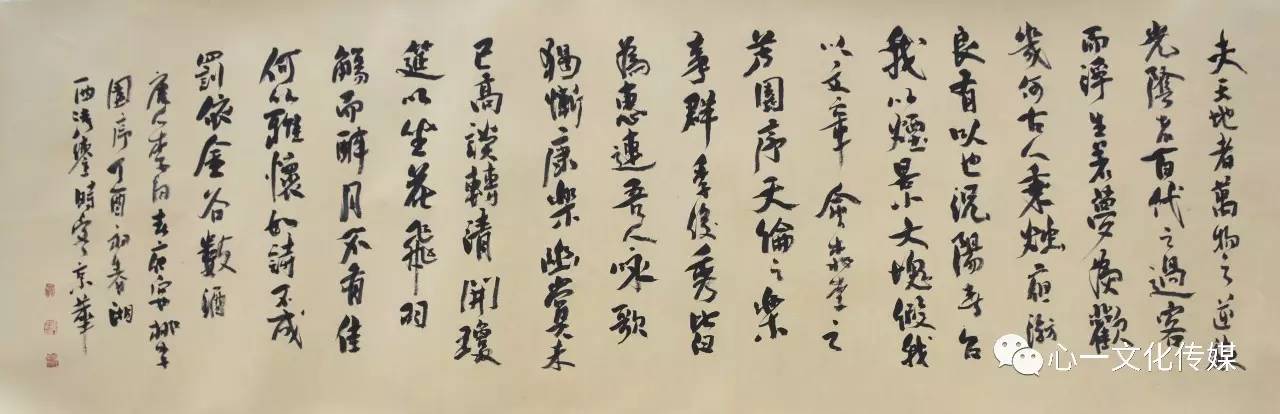 夫天地者萬物之逆旅
光陰者百代之過客
而浮生若夢為歡
幾何古人秉燭夜游
良有以也況陽春召
我以煙景大塊假我
以文章會桃李之
芳園序天倫之樂
事群季俊秀皆
為惠連吾人咏歌
獨慚康樂幽賞未
已高談轉清開瓊
筵以坐花飛羽
觴而醉月不有佳
何以雅懷如詩不成
罰依金谷數酒
唐人李白春夜宴桃李
園序丁酉初春湘
西時客京華
心一文化传媒